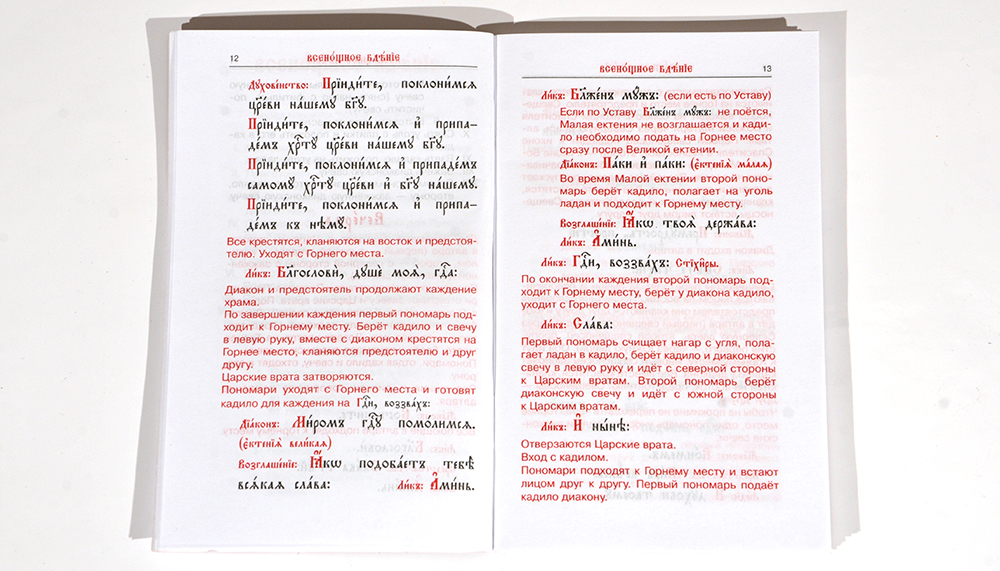 12
ВСЕНО́ЩНОЕ БДѢ́НІЕ
Дꙋхове́нство: Прїиди́те, поклони́мсѧ
цр҃е́ви на́шемꙋ бг҃ꙋ.
Прїиди́те, поклони́мсѧ и҆ припа-
де́мъ хрⷭ҇тꙋ̀ цр҃е́ви на́шемꙋ бг҃ꙋ.
Прїиди́те, поклони́мсѧ и҆ припаде́мъ
самомꙋ̀ хрⷭ҇тꙋ̀ цр҃е́ви и҆ бг҃ꙋ на́шемꙋ.
Прїиди́те, поклони́мсѧ и҆ припа-
де́мъ къ немꙋ̀.
Все крестятся, кланяются на восток и предстоя-
телю. Уходят с Горнего места.
Ли́къ: Благословѝ, дꙋшѐ моѧ̀, гдⷭ҇а:
Диакон и предстоятель продолжают каждение
храма.
По завершении каждения первый пономарь под-
ходит к Горнему месту. Берёт кадило и свечу
в левую руку, вместе с диаконом крестятся на
Горнее место, кланяются предстоятелю и друг
другу.
Царские врата затворяются.
Пономари уходят с Горнего места и готовят
кадило для каждения на Гдⷭ҇и, воззва́хъ:
Дїа́конъ: Ми́ромъ гдⷭ҇ꙋ помо́лимсѧ.
(є҆ктенїѧ̀ вели́каѧ)
Возглаше́нїе: Ꙗ҆́кѡ подоба́етъ тебѣ̀
всѧ́каѧ сла́ва: Ли́къ: А҆ми́нь.
ВСЕНО́ЩНОЕ БДѢ́НІЕ
13
Ли́къ: Бл҃же́нъ мꙋ́жъ: (если есть по Уставу)
Если по Уставу Бл҃же́нъ мꙋ́жъ: не поётся,
Малая ектения не возглашается и кади-
ло необходимо подать на Горнее место
сразу после Великой ектении.
Дїа́конъ: Па́ки и҆ па́ки: (є҆ктенїѧ̀ ма́лаѧ)
Во время Малой ектении второй поно-
марь берёт кадило, полагает на уголь
ладан и подходит к Горнему месту.
Возглаше́нїе: Ꙗ҆́кѡ твоѧ̀ держа́ва:
Ли́къ: А҆ми́нь.
Ли́къ: Гдⷭ҇и, воззва́хъ: Стїхи̑ры.
По окончании каждения второй пономарь под-
ходит к Горнему месту, берёт у диакона кадило,
уходит с Горнего места.
Ли́къ: Сла́ва:
Первый пономарь счищает нагар с угля, пола-
гает ладан в кадило, берёт кадило и диаконскую
свечу в левую руку и идёт с северной стороны
к Царским вратам. Второй пономарь берёт
диаконскую свечу и идёт с южной стороны
к Царским вратам.
Ли́къ: И҆ ны́нѣ:
Отверзаются Царские врата.
Вход с кадилом.
Пономари подходят к Горнему месту и встают
лицом друг к другу. Первый пономарь подаёт
кадило диакону.